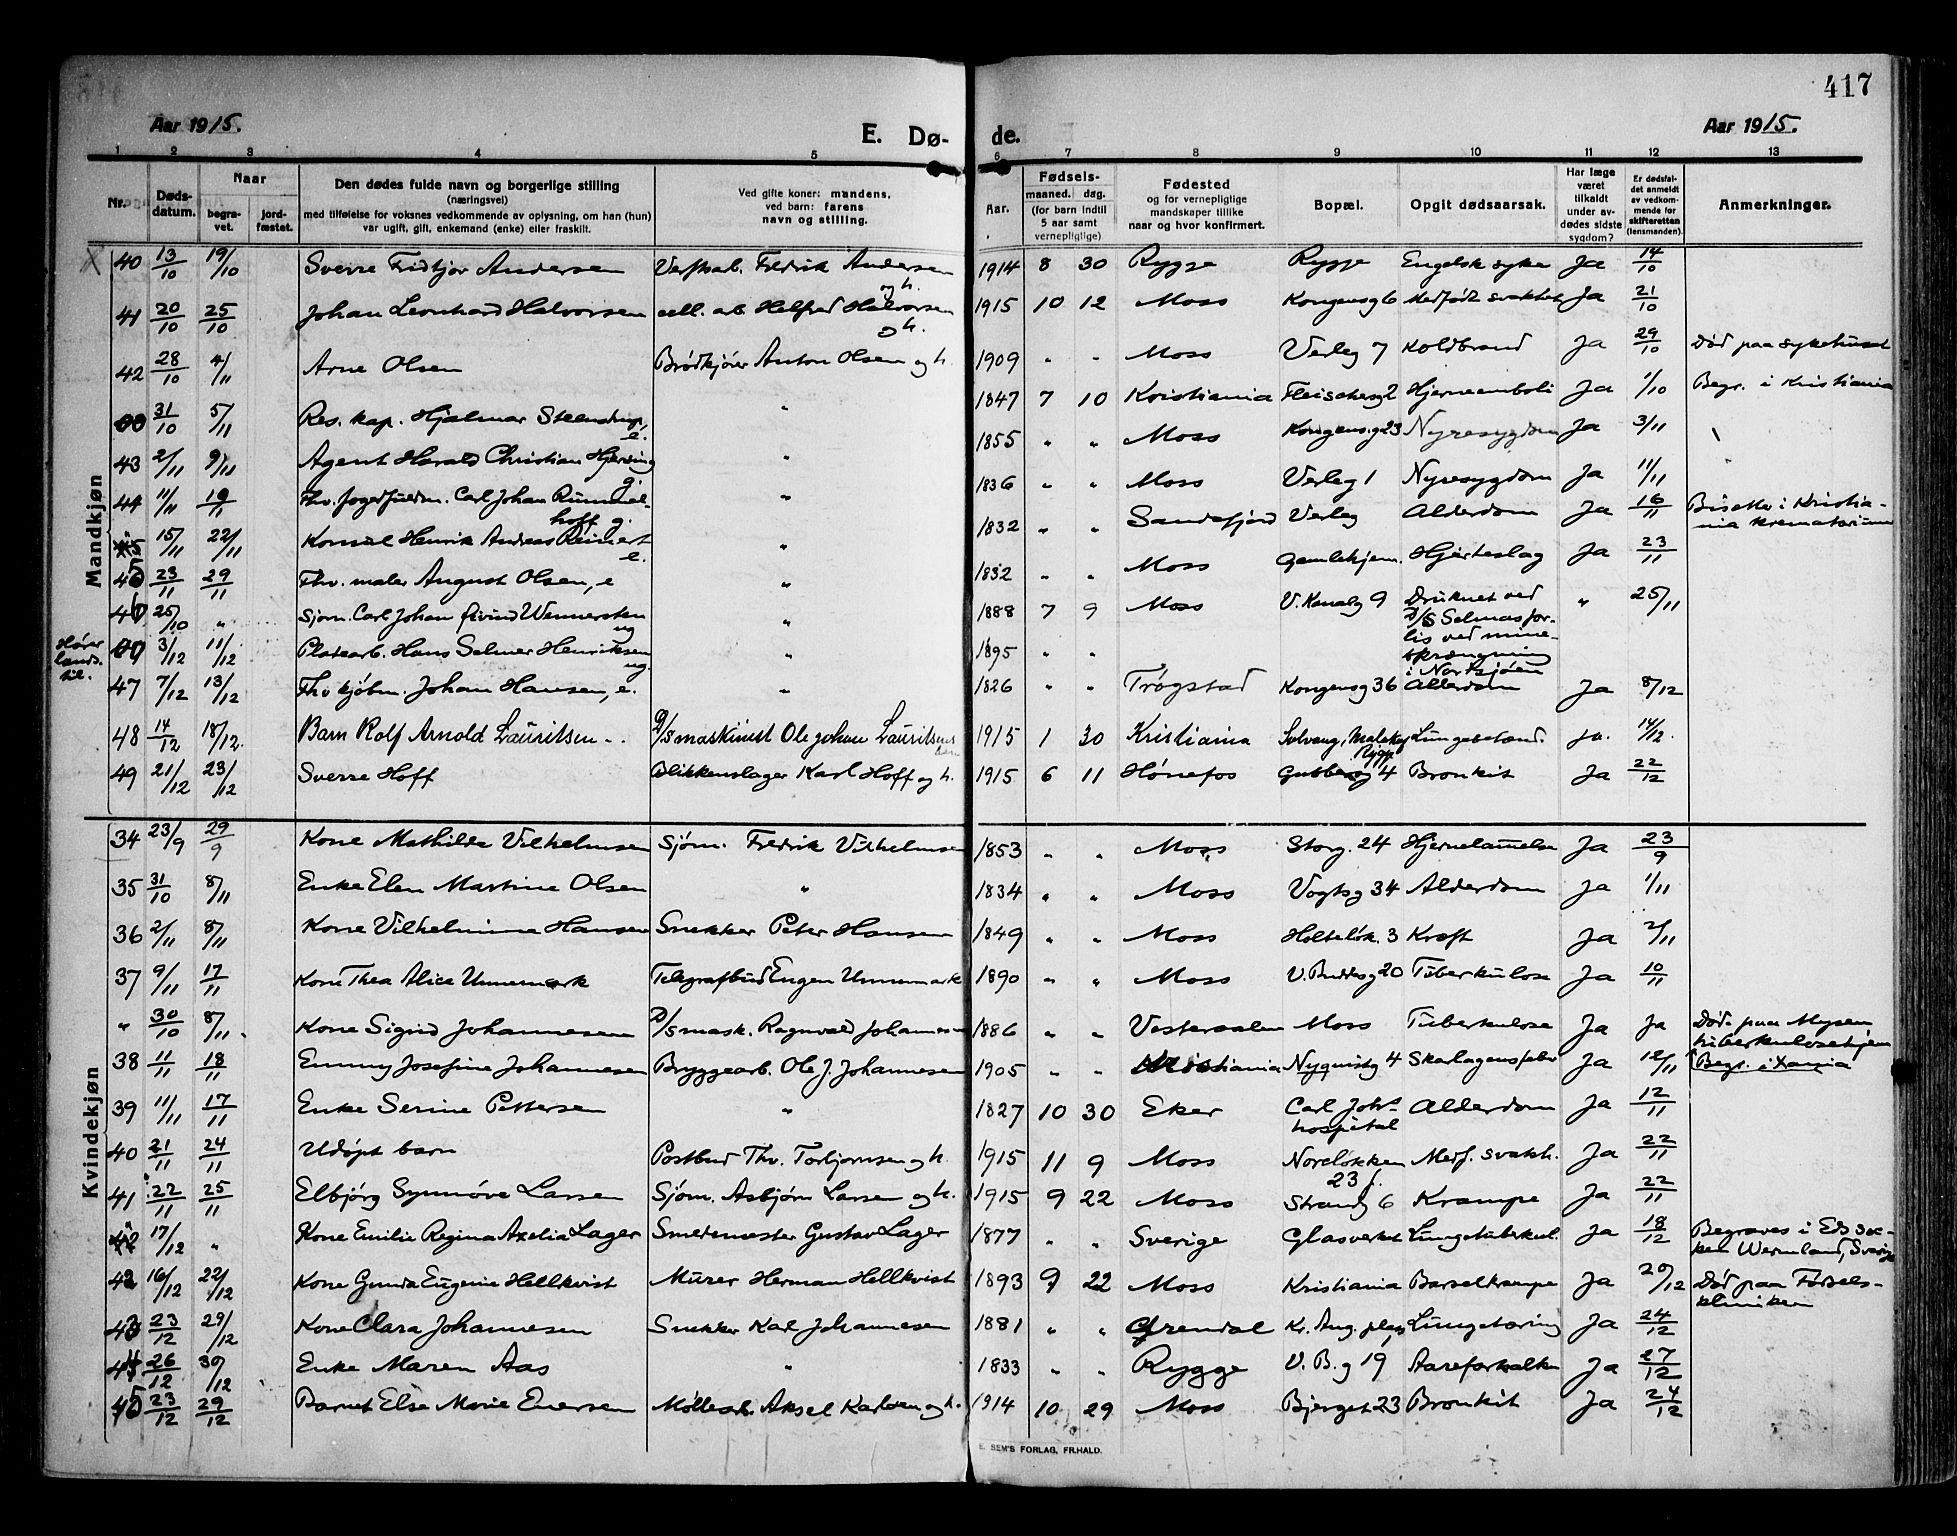 417
Aar 1915.
E. Dø-
de.
Aar 1915.
1 2 3 4 5 6 7 8 9 10 11 12 13
Nr.
Døds-
datum.
Naar
begra-
vet.
jord-
fæstet.
Den dødes fulde navn og borgerlige stilling
(næringsvei)
med tilføielse for voksnes vedkommende av oplysning, om han (hun)
var ugift, gift, enkemand (enke) eller fraskilt.
Ved gifte koner: mandens,
ved barn: farens
navn og stilling.
Aar.
Fødsels-
maaned. dag.
(for barn indtil
5 aar samt
vernepligtige)
Fødested
og for vernepligtige
mandskaper tillike
naar og hvor konfirmert.
Bopæl.
Opgit dødsaarsak.
Har læge
været
tilkaldt
under av-
dødes sidste
sygdom?
Er dødsfal-
det anmeldt
av vedkom-
mende for
skifteretten
(lensmanden).
Anmerkninger.
Mandkjøn
40 13/10 19/10 Sverre Fridtjov Andersen Verftsarb. Fredrik Andersen og h. 1914 8 30 Rygge Rygge Engelsk syke Ja 14/10
41 20/10 25/10 Johan Leonhard Halvorsen cell. arb. Helfred Halvorsen o h. 1915 10 12 Moss Kongensg 6 Medfødt svakhet Ja 21/10
42 28/10 4/11 Arne Olsen Brødkjører Anton Olsen og h. 1909 " " Moss Verleg 7 Koldbrand Ja 29/10 Død paa sykehuset
00 31/10 5/11 Res. kap. Hjalmar Steenstrup, e. " 1847 7 10 Kristiania Fleischersg 2 Hjerneemboli Ja 1/10 Begr. i Kristiania
43 2/11 9/11 Agent Harald Christian Hjersing g. " 1855 " " Moss Kongensg 23 Nyresygdom Ja 3/11
44 11/11 19/11 Fhv. fogedfuldm. Carl Johan Rummel-
hoff g. " 1836 " " Moss Verleg 1 Nyresygdom Ja 11/11
" 15/11 22/11 Konsul Henrik Andreas Reinert e. " 1832 " " Sandefjord Verleg Alderdom Ja 16/11 Bisettes i Kristia-
nia krematorium
45 23/11 29/11 Fhv. maler August Olsen, e " 1832 " " Moss Gamlehjem. Hjerteslag Ja 23/11
46 25/10 " Sjøm. Carl Johan Øivind Wennersten ug " 1888 7 9 Moss V. Kanalg 9 Druknet ved
D/S Selmas for-
lis ved mine-
sprængning
i Nordsjøen " 25/11
Hører
lands-
til.
3/12 11/12 Platearb. Hans Selmer Henriksen ug. " 1895 " "
47 7/12 13/12 Fhv kjøbm. Johan Hansen, e. " 1826 " " Trøgstad Kongensg 36 Alderdom Ja 8/12
48 14/12 18/12. Barn Rolf Arnold Lauritsen - . D/S maskinist Ole Johan Lauritsens 1915 1 30 Kristiania Solvang, Rygge Lungebetænd. ja. 14/12.
49 21/12 23/12 Sverre Hoff Blikkenslager Karl Hoff og h. 1915 6 11 Hønefos Gubbeg 4 Bronkit Ja 22/12
Kvindekjøn
34 23/9 29/9 Kone Mathilde Vilhelmsen Sjøm. Fredrik Vilhelmsen 1853 " " Moss Storg. 24 Hjernelammelse Ja 23/9
35 31/10 8/11 Enke Elen Martine Olsen " 1834 " " Moss Vogtsg 34 Alderdom Ja 1/11
36 2/11 8/11 Kone Vilhelmine Hansen Snekker Peter Hansen 1849 " " Moss Holteløk. 3 Kræft Ja 2/11
37 9/11 17/11 Kone Thea Alice Unnemark Telegrafbud Eugen Unnemark 1890 " " Moss V. Buddesg 20 Tuberkulose Ja 10/11
" 30/10 8/11 Kone Sigrid Johannesen D/S mask. Ragnvald Johannesen 1886 " " Vesteraalen Moss Tuberkulose Ja Ja Død paa Mysen
tuberkulosehjem
38 11/11 18/11 Emmy Josefine Johannesen Bryggearb. Ole J. Johannesen 1905 " " Kristiania Nyquistg 4 Skarlagensfeber Ja 12/11 Begr. i Xania
39 11/11 17/11 Enke Serine Pettersen " 1827 10 30 Eker Carl Johs
hospital Alderdom Ja 12/11
40 21/11 24/11 Udøpt barn Postbud Thv. Torbjørnsen og h. 1915 11 9 Moss Noreløkken
23 Medf. svakh. Ja 22/11
41 22/11 25/11 Elbjørg Synnøve Larsen Sjøm. Asbjørn Larsen og h. 1915 9 22 Moss Strandg 6 Krampe Ja 22/11
" 17/12 " Kone Emilie Regina Axelia Lager Smedemester Gustav Lager 1877 " " Sverige Glasverket Lungetuberkul. Ja 18/12 Begraves i Eds so-
ken Wermland, Sverige
42 16/12 22/12 Kone Gunda Eugenie Hellkvist Murer Herman Hellkvist 1893 9 22 Moss Kristiania Barselkrampe Ja 20/12 Død paa Fødsels-
kliniken
43 23/12 29/12 Kone Clara Johannesen Snekker Karl Johannesen 1881 " " Grendal Kr. Aug. plas Lungetæring Ja 24/12
44 26/12 30/12 Enke Maren Aas " 1833 " " Rygge V. B. g 19 Aareforkalkn Ja 27/12
45 23/12 29/12 Barnet Else Marie Enersen Møllearb. Aksel Karlsen og h. 1914 10 29 Moss Bjerget 23 Bronkit Ja 24/12
E. SEM'S FORLAG, FR.HALD.